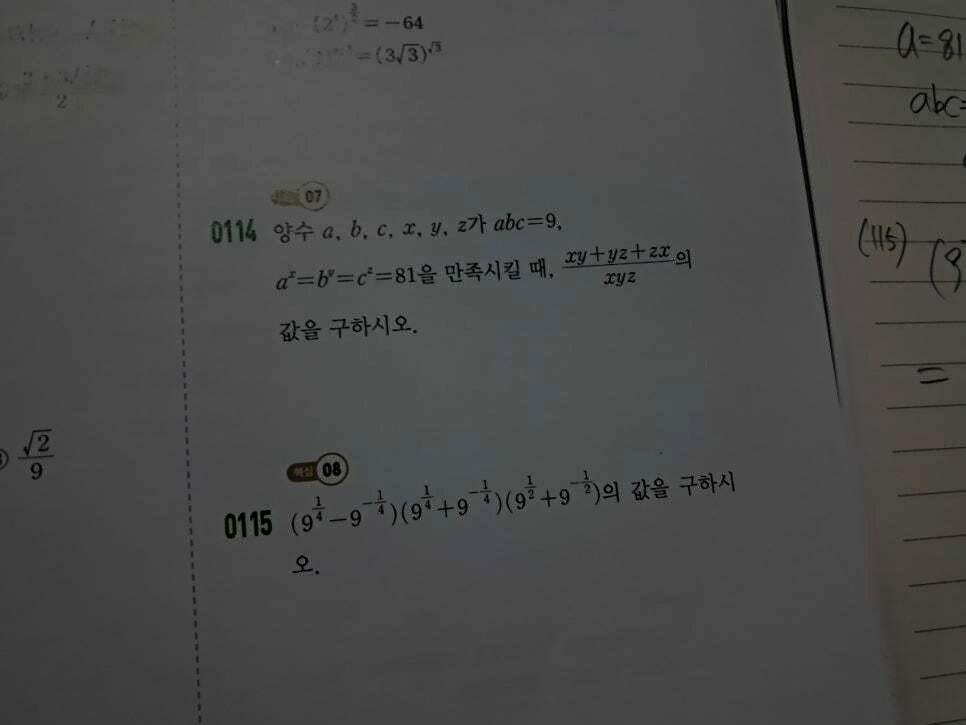 (2⁴)^{3/2}=−64
=(3√3)^{√3}
2
07
0114 양수 a, b, c, x, y, z가 abc=9,
aˣ=bʸ=cᶻ=81을 만족시킬 때, (xy+yz+zx)/(xyz)의
값을 구하시오.
√2/9
핵심 08
0115 (9^{1/4}−9^{−1/4})(9^{1/4}+9^{−1/4})(9^{1/2}+9^{−1/2})의 값을 구하시
오.
a=81
abc=
(115) (9
=